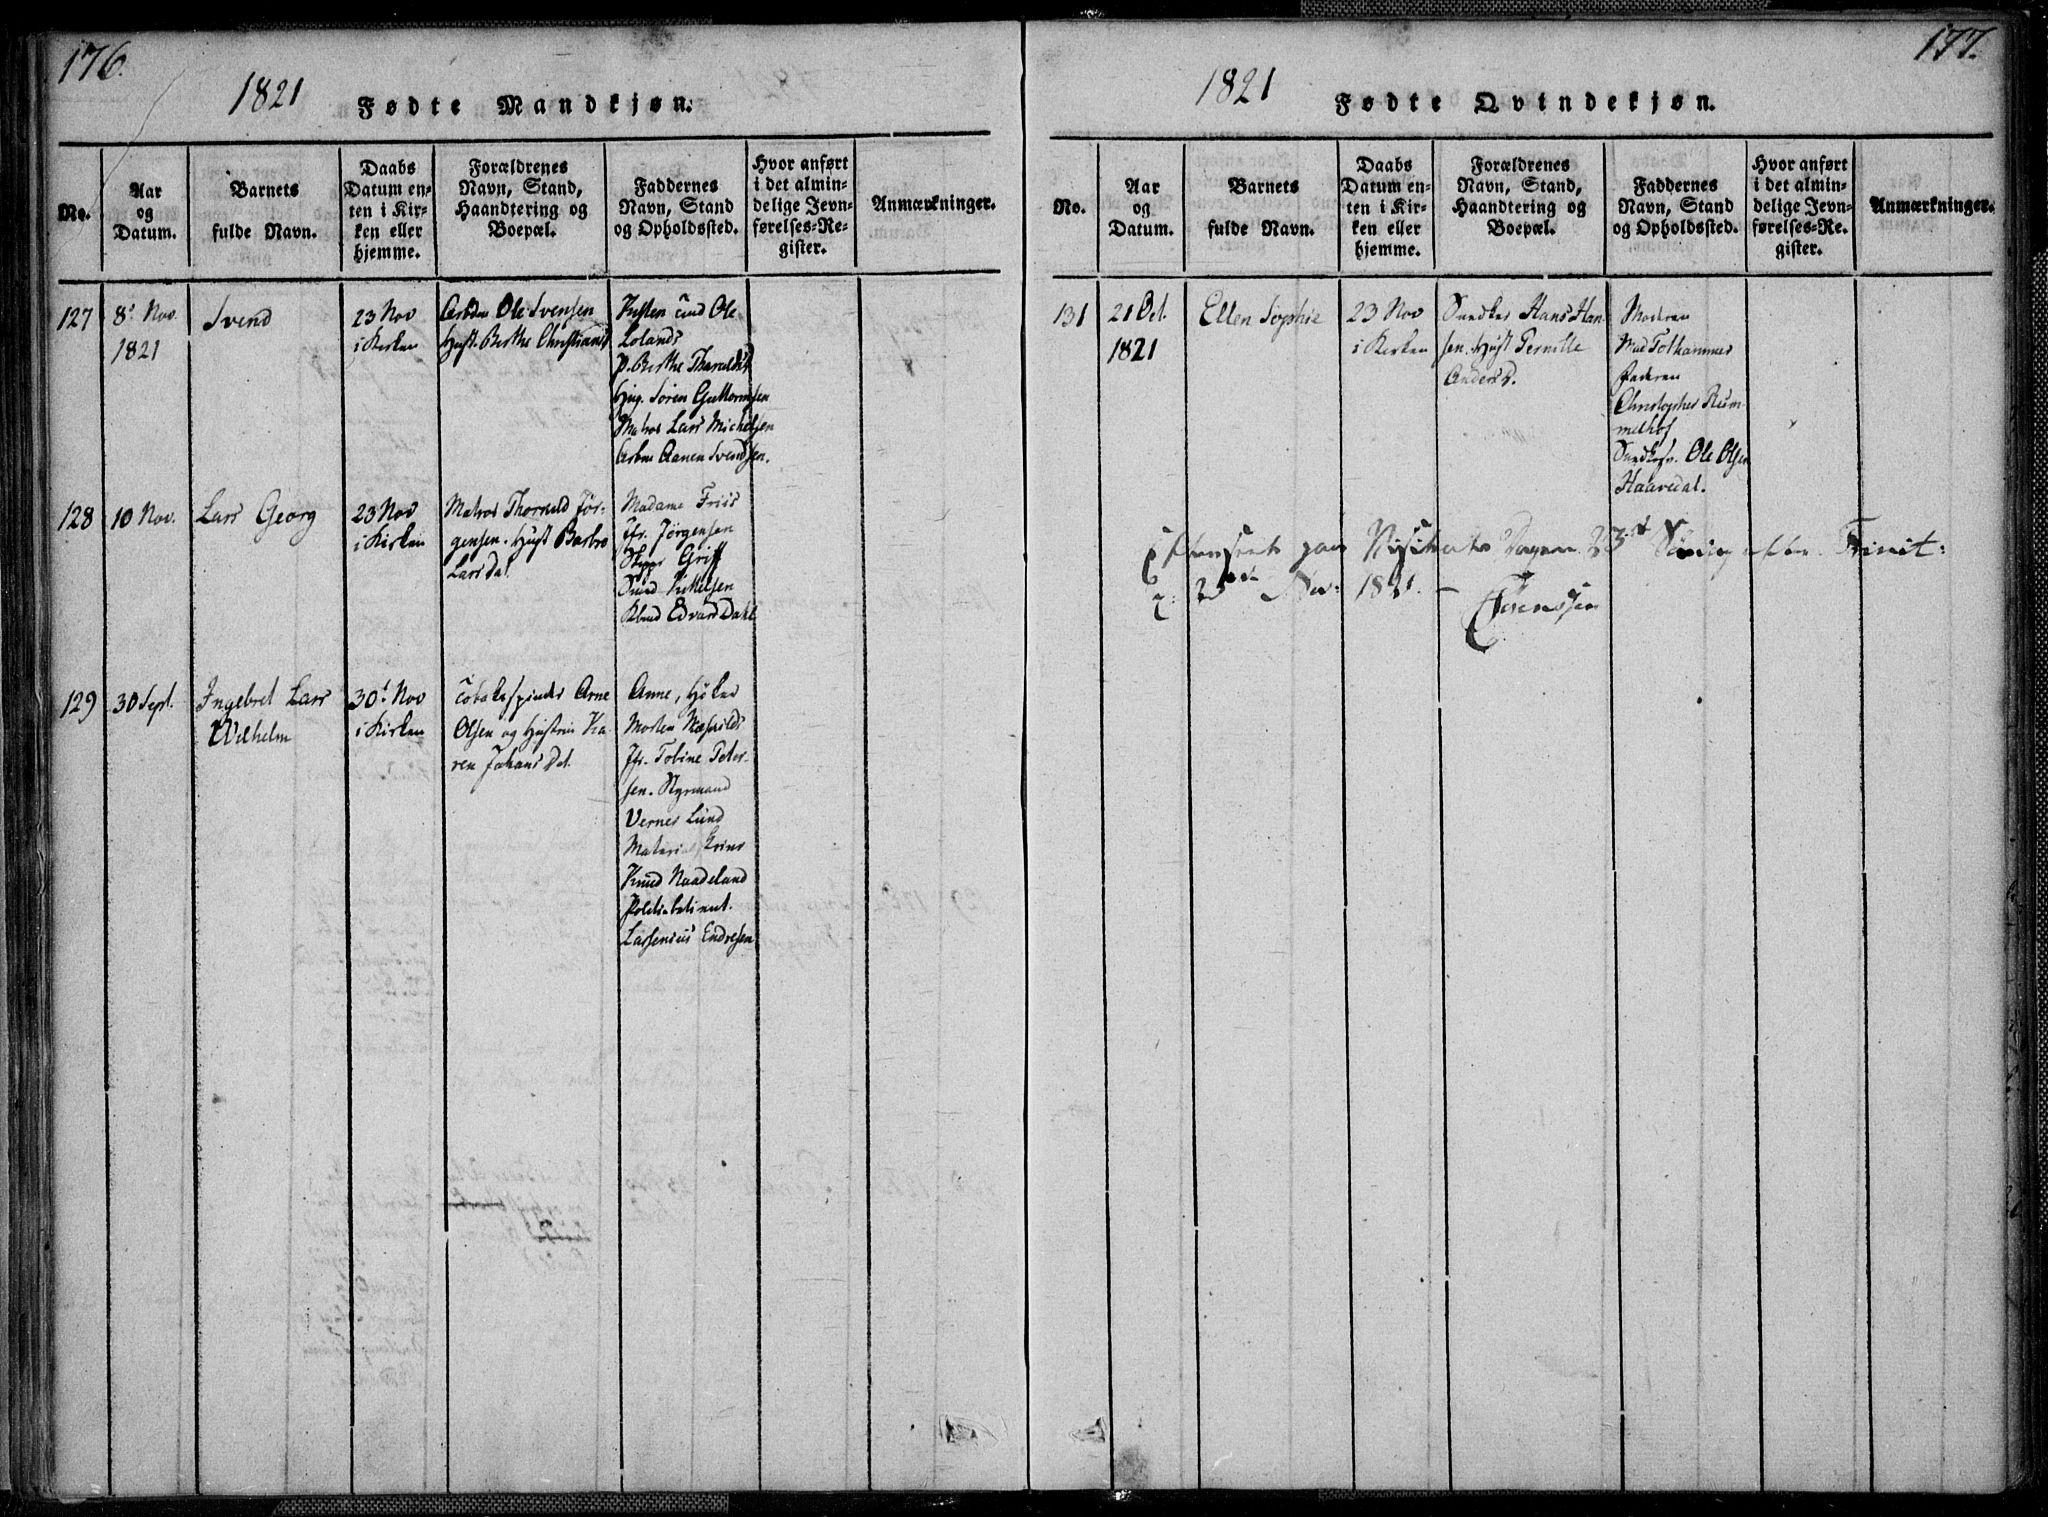 176.
1821
Fødte Mandkjøn.
No.
Aar
og
Datum.
Barnets
fulde Navn.
Daabs
Datum en-
ten i Kir-
ken eller
hjemme.
Forældrenes
Navn, Stand,
Haandtering og
Boepæl.
Faddernes
Navn, Stand
og Opholdssted.
Hvor anført
i det almin-
delige Jevn-
førelses-Re-
gister.
Anmærkninger.
127
8' Nov.
1821
Svend
23 Nov
i Kirken
Ole Svensen
Hust. Berthe Christians
Ole
Lolands
P. Berthe
Søren Guttormsen
Matros Lars Michelsen
Aanen Svendsen.
128
10 Nov.
Lars Georg
23 Nov
i Kirken
Matros Thorvald Jør-
gensen. Hust Barbro
Larsdal.
Madame Friis
Jfr. Jørgensen
Grif
Edvard Dahl
129
30 Sept.
Ingebret Lars
Wilhelm
30' Nov
i Kirken
Tobakspinder Arne
Olsen og Hustrue Ka-
ren Johansdal.
Anne, Høker
Morten
Jfr. Tobine Peter-
sen. Styrmand
Vernes Lund
Knud Naadeland
Politiebetient.
Lassenius Endresen
177.
1821
Fødte Qvindekjøn.
No.
Aar
og
Datum.
Barnets
fulde Navn.
Daabs
Datum en-
ten i Kir-
ken eller
hjemme.
Forældrenes
Navn, Stand,
Haandtering og
Boepæl.
Faddernes
Navn, Stand
og Opholdssted.
Hvor anført
i det almin-
delige Jevn-
førelses-Re-
gister.
Anmærkninger.
131
21 Oct.
1821
Ellen Sophie
23 Nov
i Kirken
Hans Han-
sen. Hust Pernille
Andersd.
Moderen
Mad Tolhammer
Faderen
Christopher Rum-
melhof
Ole Olsen
Haavedal.
paa Visitats Dagen 23d Søndag efter Trinit:
Nov: 1821. –
Sørenssen